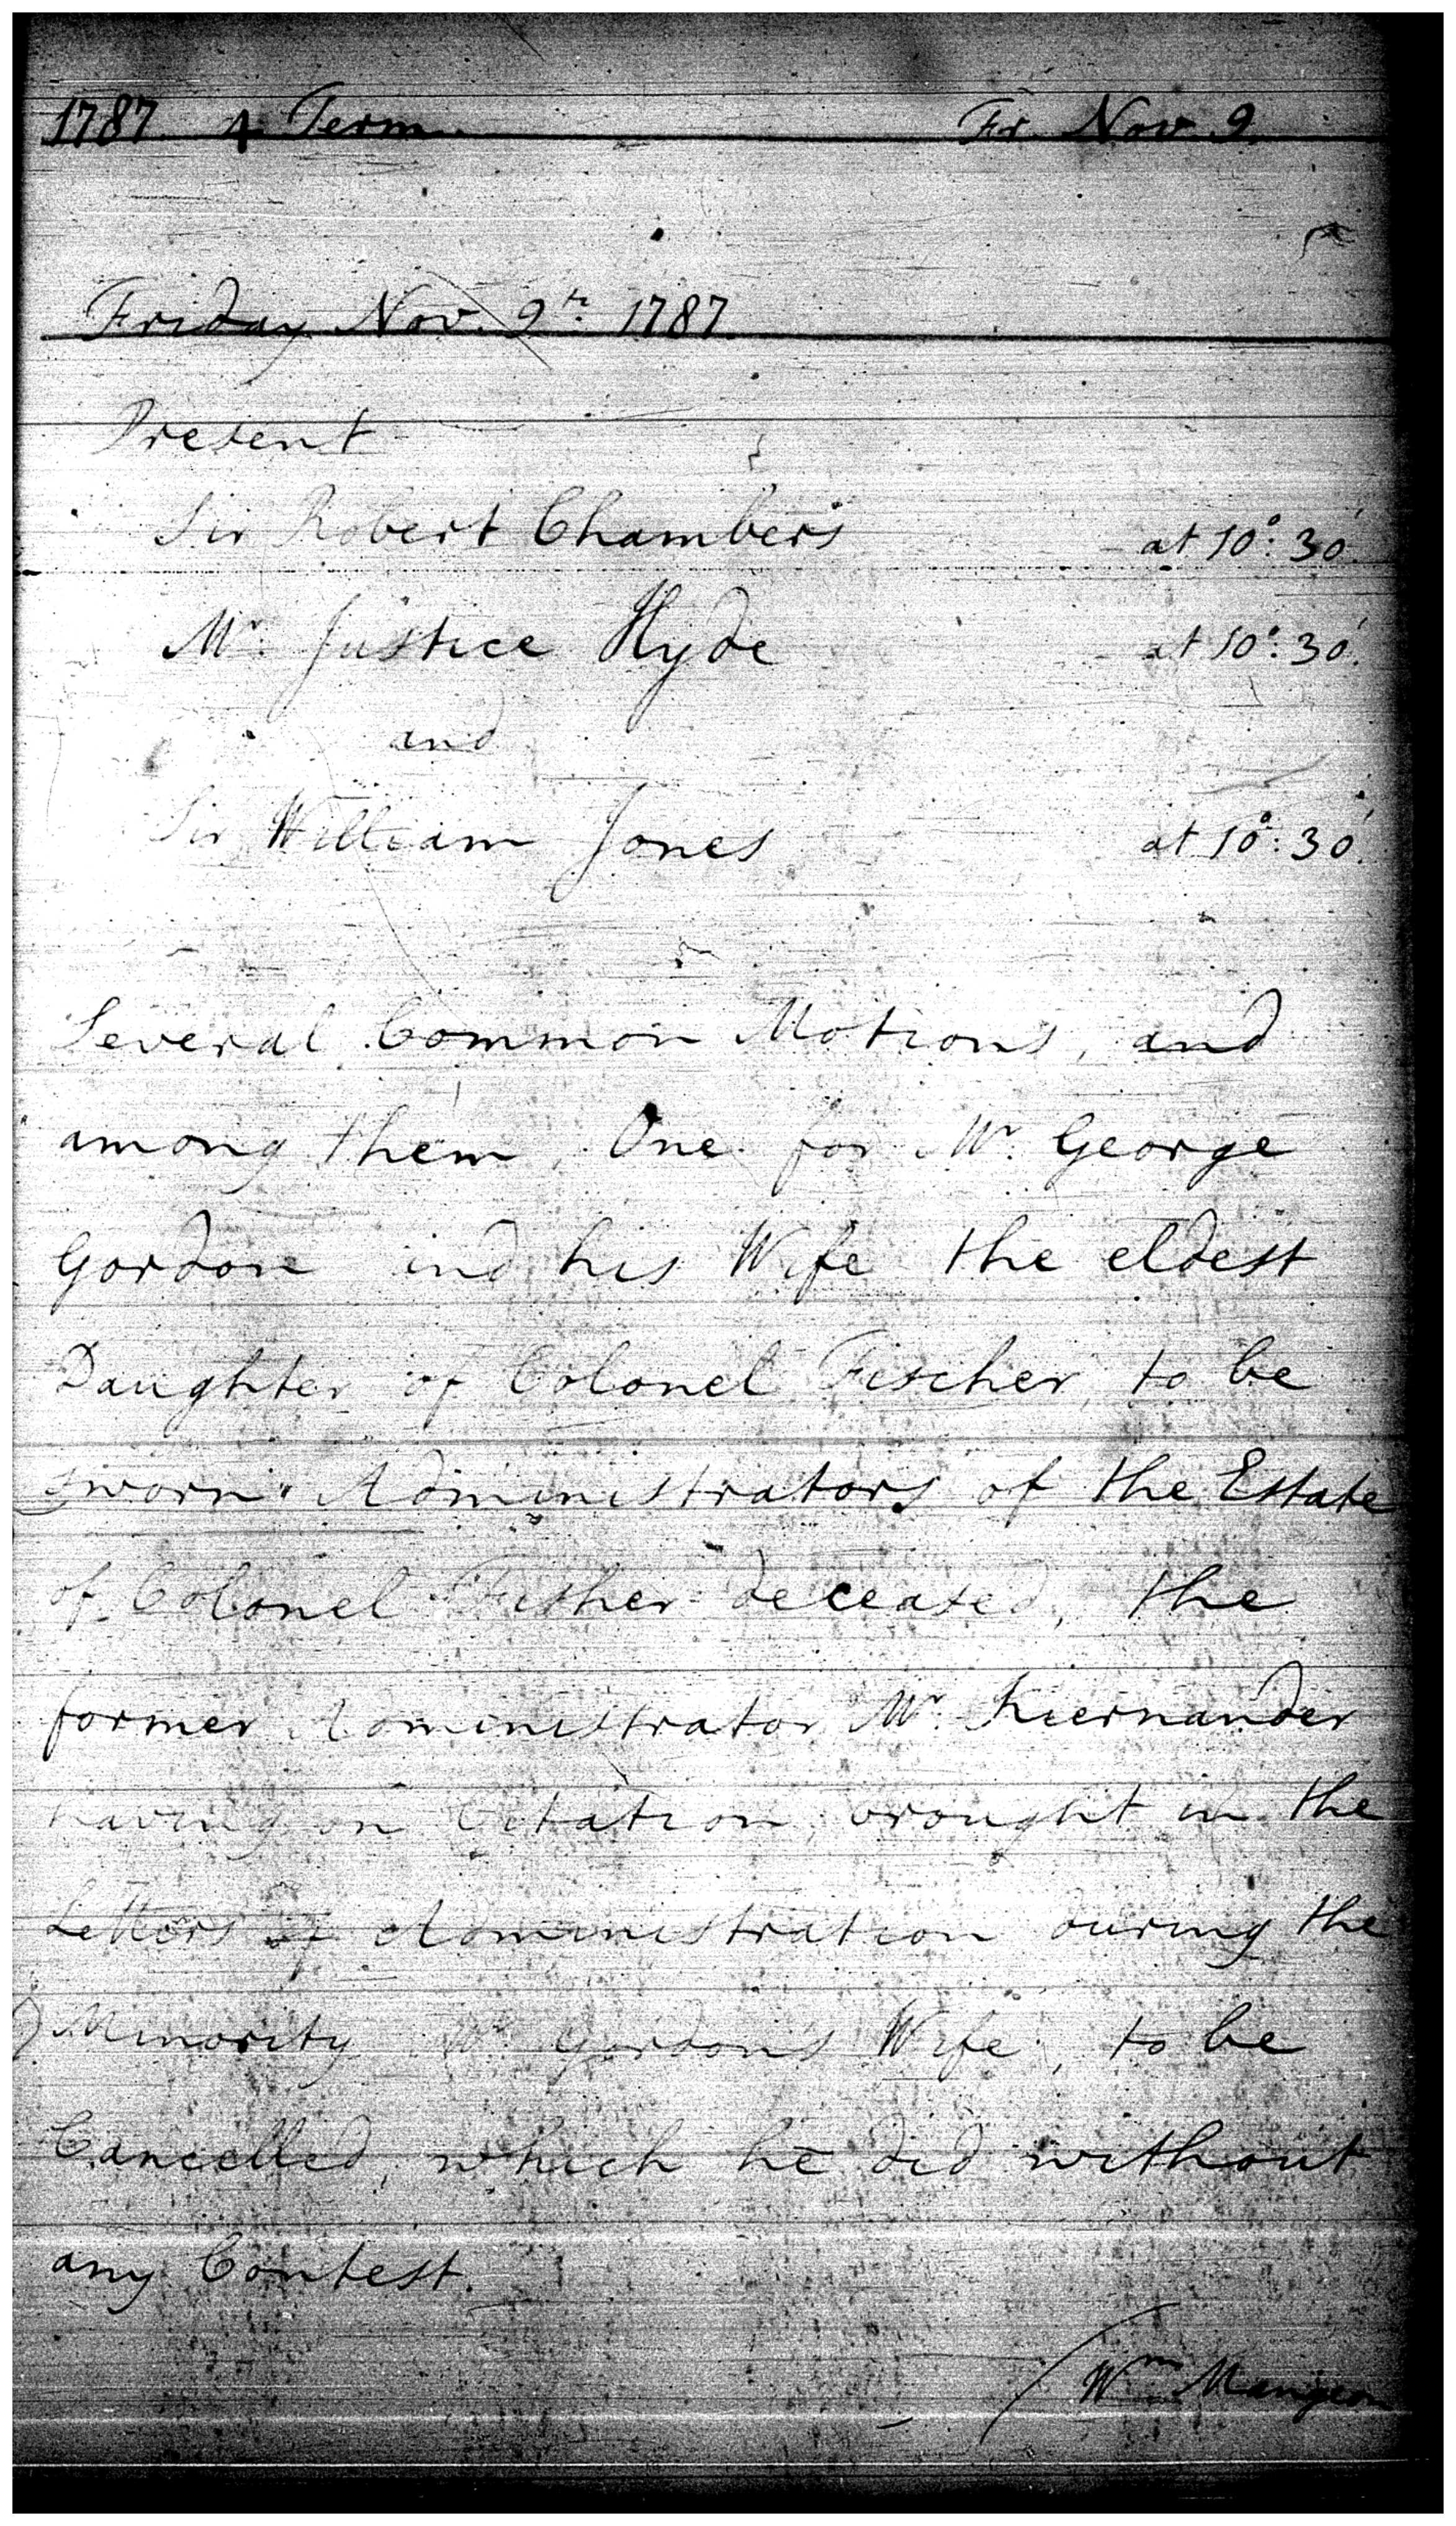 1787. 4 Term. Fr. Nov. 9.
Friday Nov. 9th. 1787
Present
Sir Robert Chambers at 10°: 30'.
Mr. Justice Hyde at 10°: 30'.
and
Sir William Jones at 10°: 30'.
Several Common Motions, and
among them, One for Mr. George
Gordon and his Wife the eldest
Daughter of Colonel Fischer, to be
sworn Administrators of the Estate
of Colonel Fisher deceased, the
former Administrator Mr. Kiernander
having on Citation brought in the
Letters of Administration during the
Minority Mr. Gordon's Wife, to be
Cancelled, which he did without
any Contest.
Wm